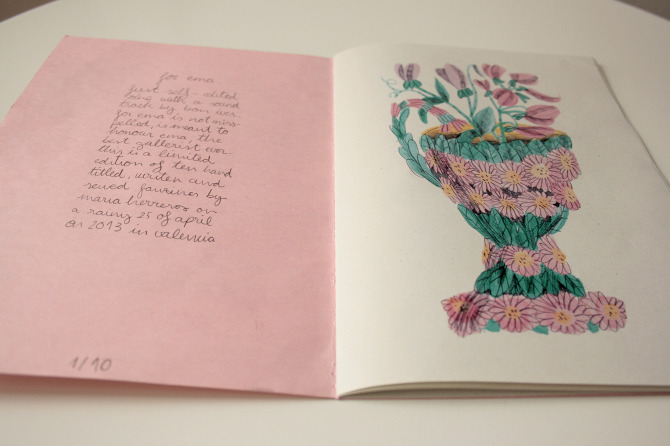 for ema
first self-edited
zine with a sound
track by bon iver
for ema is not miss
pelled, is meant to
honour ema, the
best gallerist ever.
this is a limited
edition of ten hand
titled, writen and
sewed fanzines by
maria herreros on
a rainy 25 of april
on 2013 in valencia
1/10